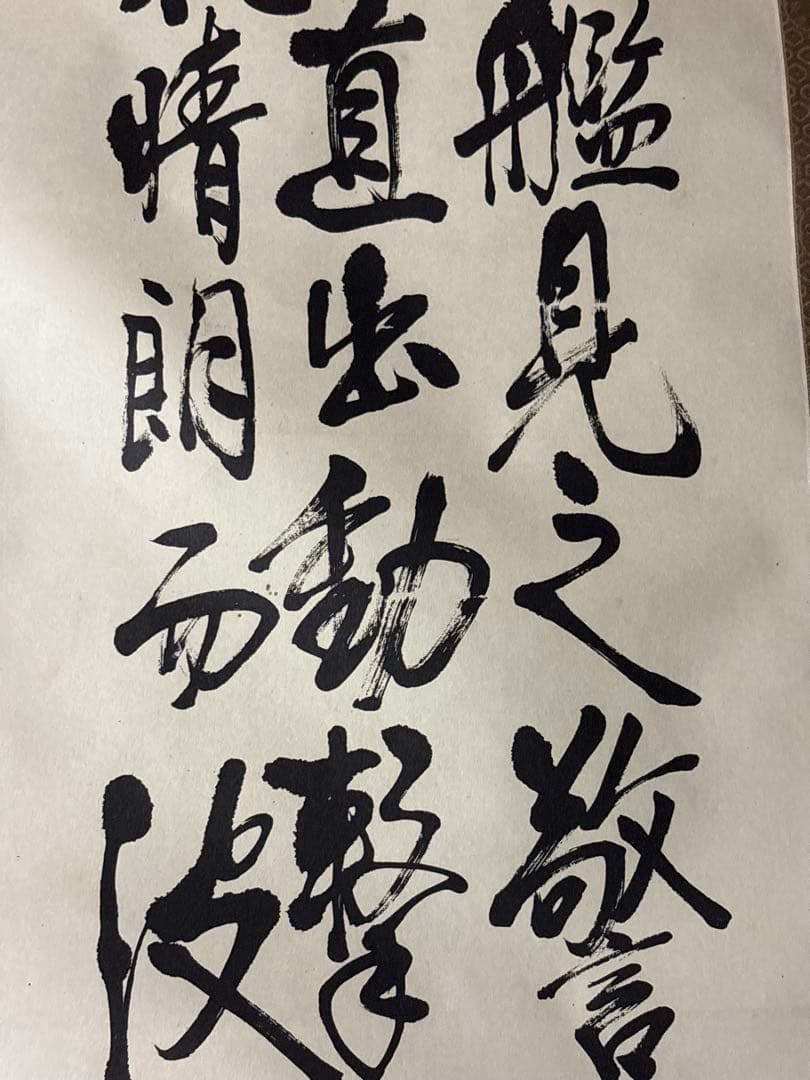 艦見之警
直出動撃
晴朗而波